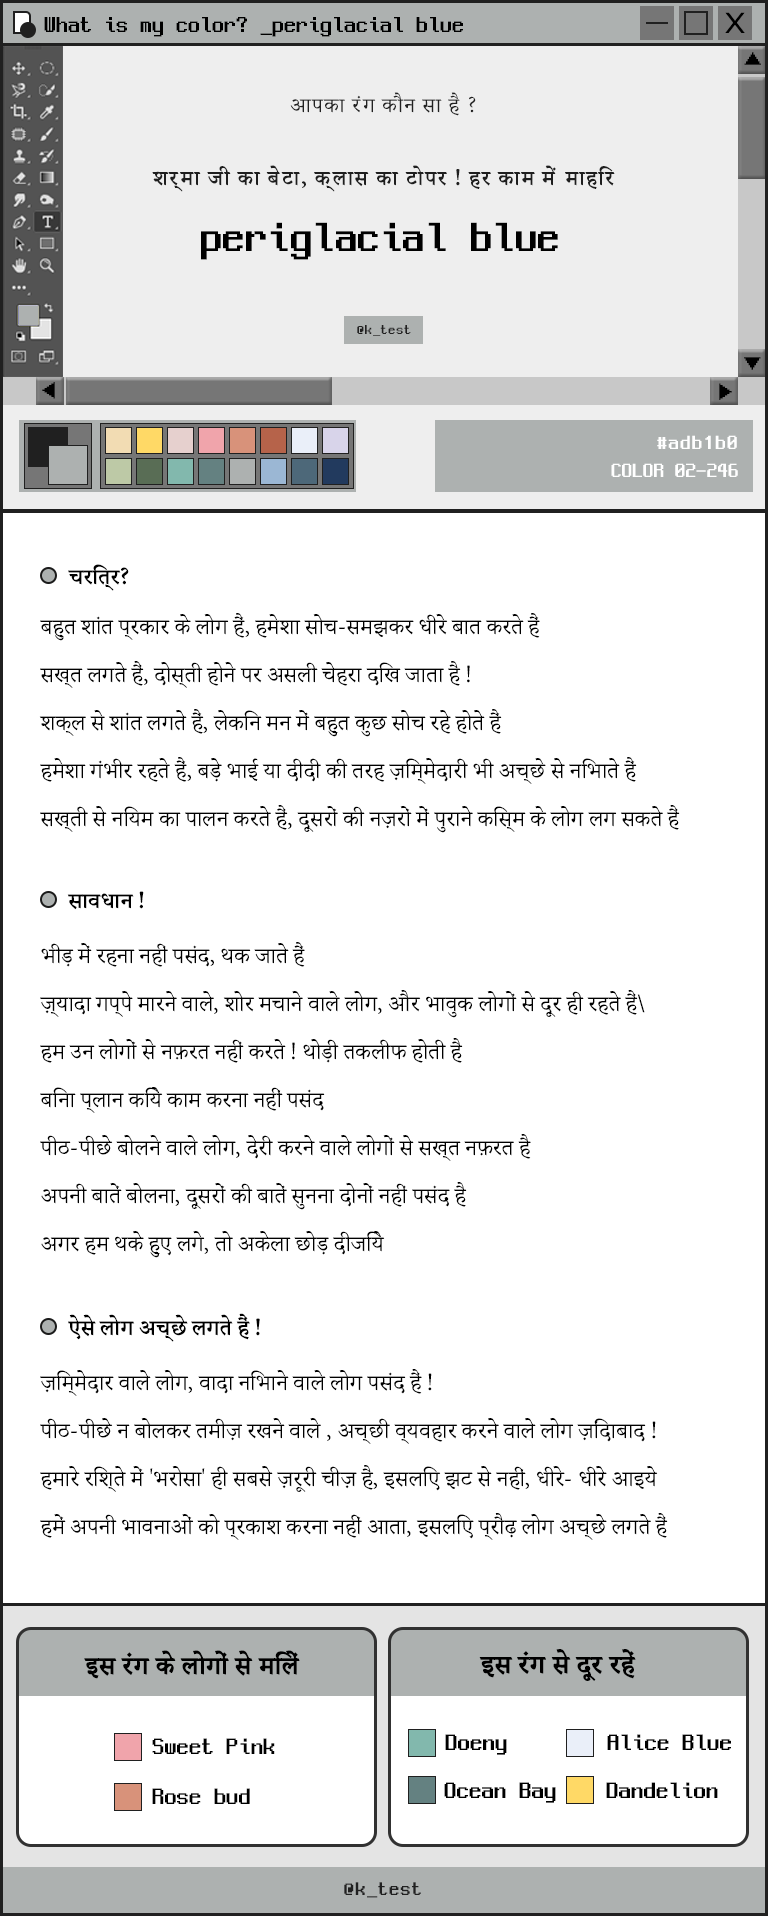 What is my color? _periglacial blue
आपका रंग कौन सा है ?
शर्मा जी का बेटा, क्लास का टोपर ! हर काम में माहरि
periglacial blue
@k_test
#adb1b0
COLOR 02-246
चरित्र?
बहुत शांत प्रकार के लोग हैं, हमेशा सोच-समझकर धीरे बात करते हैं
सख्त लगते हैं, दोस्ती होने पर असली चेहरा दिख जाता है !
शक्ल से शांत लगते हैं, लेकिन मन में बहुत कुछ सोच रहे होते हैं
हमेशा गंभीर रहते हैं, बड़े भाई या दीदी की तरह ज़िम्मेदारी भी अच्छे से निभाते हैं
सख्ती से नियम का पालन करते हैं, दूसरों की नज़रों में पुराने किस्म के लोग लग सकते हैं
सावधान !
भीड़ में रहना नही पसंद, थक जाते हैं
ज़्यादा गप्पे मारने वाले, शोर मचाने वाले लोग, और भावुक लोगों से दूर ही रहते है\
हम उन लोगों से नफ़रत नहीं करते ! थोड़ी तकलीफ होती है
बिना प्लान किये काम करना नहीं पसंद
पीठ-पीछे बोलने वाले लोग, देरी करने वाले लोगों से सख्त नफ़रत है
अपनी बातें बोलना, दूसरों की बातें सुनना दोनों नहीं पसंद है
अगर हम थके हुए लगे, तो अकेला छोड़ दीजिये
ऐसे लोग अच्छे लगते हैं !
ज़िम्मेदार वाले लोग, वादा निभाने वाले लोग पसंद हैं !
पीठ-पीछे न बोलकर तमीज़ रखने वाले , अच्छी व्यवहार करने वाले लोग ज़िंदाबाद !
हमारे रिश्ते में 'भरोसा' ही सबसे ज़रूरी चीज़ है, इसलिए झट से नहीं, धीरे- धीरे आइये
हमें अपनी भावनाओं को प्रकाश करना नहीं आता, इसलिए प्रौढ़ लोग अच्छे लगते हैं
इस रंग के लोगों से मिलें
Sweet Pink
Rose bud
इस रंग से दूर रहें
Doeny Alice Blue
Ocean Bay Dandelion
@k_test